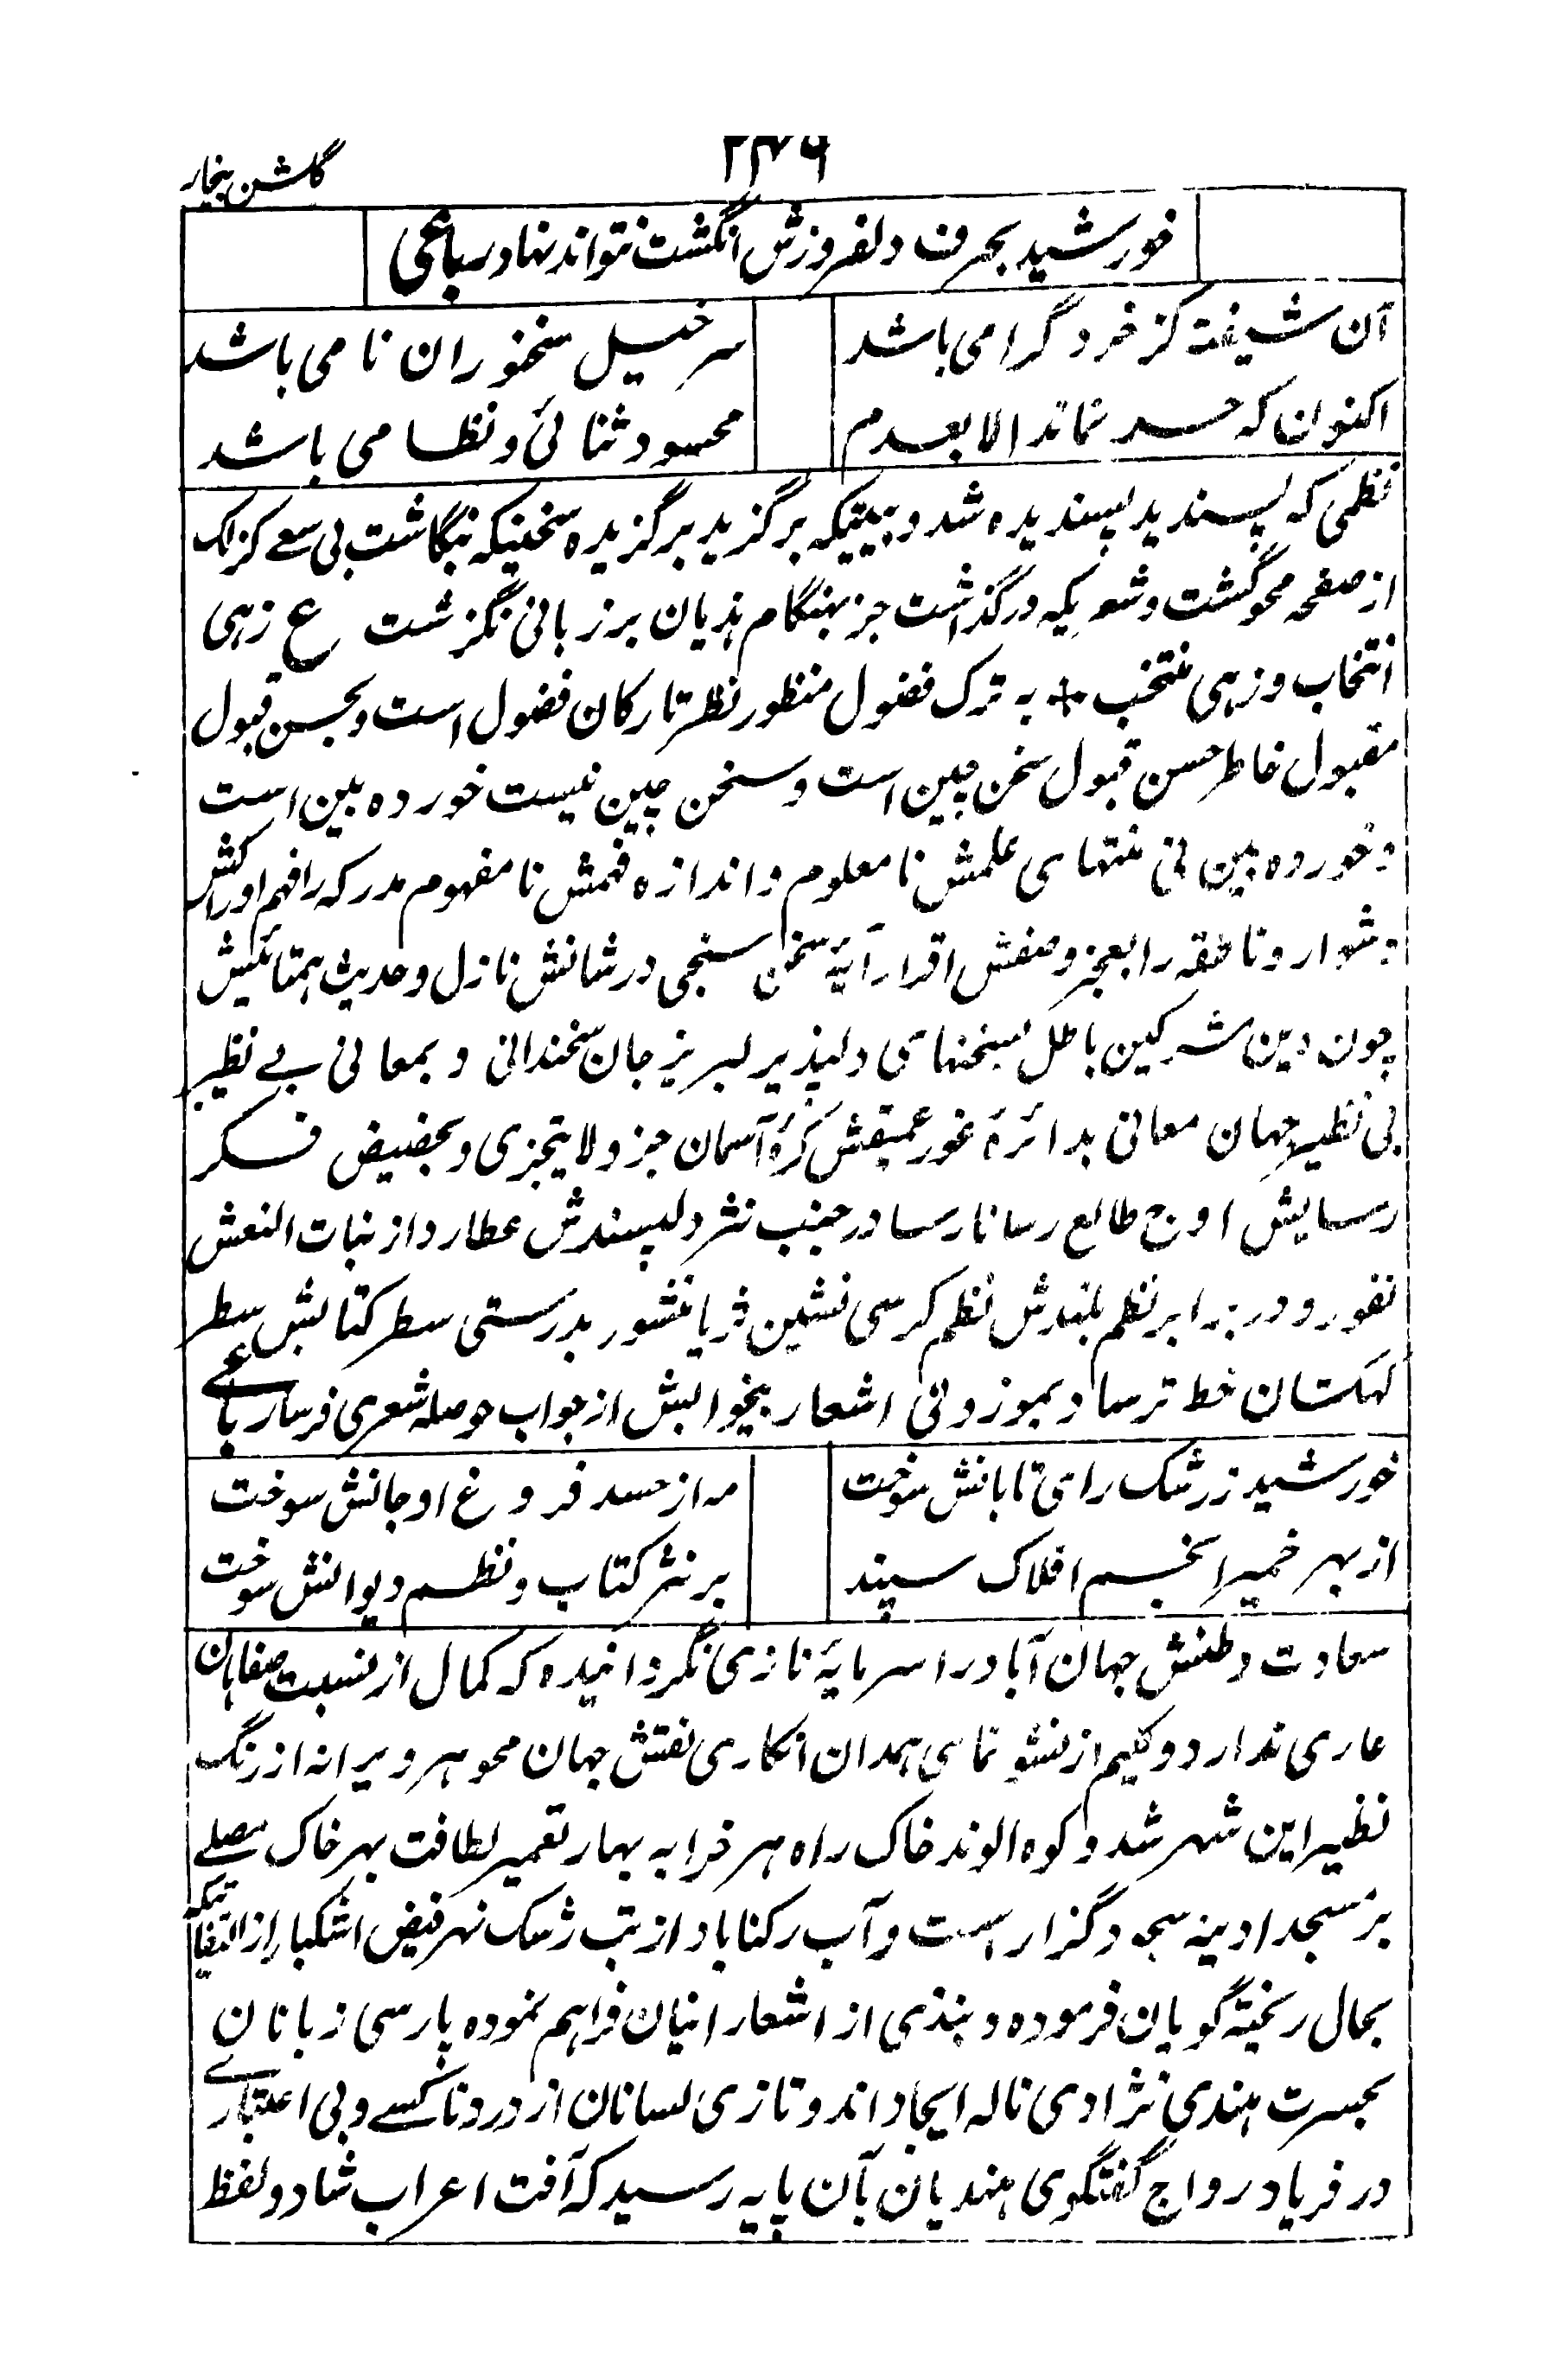 ۲۴۶
گلشن بیخار
خورشید بحرف دلفروزش انگشت نتواند نهاد رباعی
آن شیفتہ کز خرد گرامی باشد
سرخیل سخنوران نامی باشد
اکنون کہ حسد نماند الا بعدم
محسود ثنائی و نظامی باشد
نظمی کہ پسندید پسندیدہ شد و بیتیکہ برگزید برگزیدہ سخنیکہ بنگاشت بی سعے کزلک
از صفحہ محو گشت و شعریکہ درگذاشت جز بہنگام ہذیان بر زبانی نگزشت ع زہی
انتخاب و زہی منتخب + بہ ترک فضول منظور نظر تارکان فضول است و بحسن قبول
مقبول خاطر حسن قبول سخن چین است و سخن چین نیست خوردہ بین است
و خوردہ بین نی منتہای علمش نامعلوم و اندازہ فہمش نامفہوم مدرکہ را فہم ادراکش
دشوار و ناطقہ را بعجز وصفش اقرار آیۂ سخن سنجی در شانش نازل و حدیث ہمتائیش
چون دین مشرکین باطل بسخنہای دلپذیر لبریز جان سخندانی و بمعانی بے نظیر
بی نظیر جہان معانی بدائرۂ غور عمیقش کرۂ آسمان جزو لا یتجزی و بحضیض فکر
رسایش اوج طالع رسا نارسا در جنب نثر دلپسندش عطارد از بنات النعش
نفور و در برابر نظم بلندش نظم کرسی نشین ثریا منثور بدرستی سطر کتابش سطر
کہکشان خط ترسا و بموزونی اشعار بیجوابش از جواب حوصلہ شعری فرسا رباعے
خورشید ز رشک رای تابانش سوخت
مہ از حسد فروغ او جانش سوخت
از بہر خمیر انجم افلاک سپند
بر نثر کتاب و نظم دیوانش سوخت
سعادت وطنش جہان آباد را سرمایۂ نازی نگردانیدہ کہ کمال از نسبت صفاہان
عاری ندارد و کلیم از نشو نمای ہمدان انکاری نقش جہان محو ہر ویرانہ از رنگ
نظیر این شہر شد و کوہ الوند خاک راہ ہر خرابہ بہار تعمیر لطافت بہر خاک مصلے
بر مسجد ادینہ سجدہ گزار است و آب رکناباد از تب رشک نہر فیض اشکبار از التفاتیکہ
بحال ریختہ گویان فرمودہ و پندی از اشعار اینان فراہم نمودہ پارسی زبانان
بحسرت ہندی نژادی نالہ ایجاد اند و تازی لسانان از درد ناکسے و بی اعتبارے
در فریاد رواج گفتگوی ہندیان بآن پایہ رسید کہ آفت اعراب شاد و لفظ